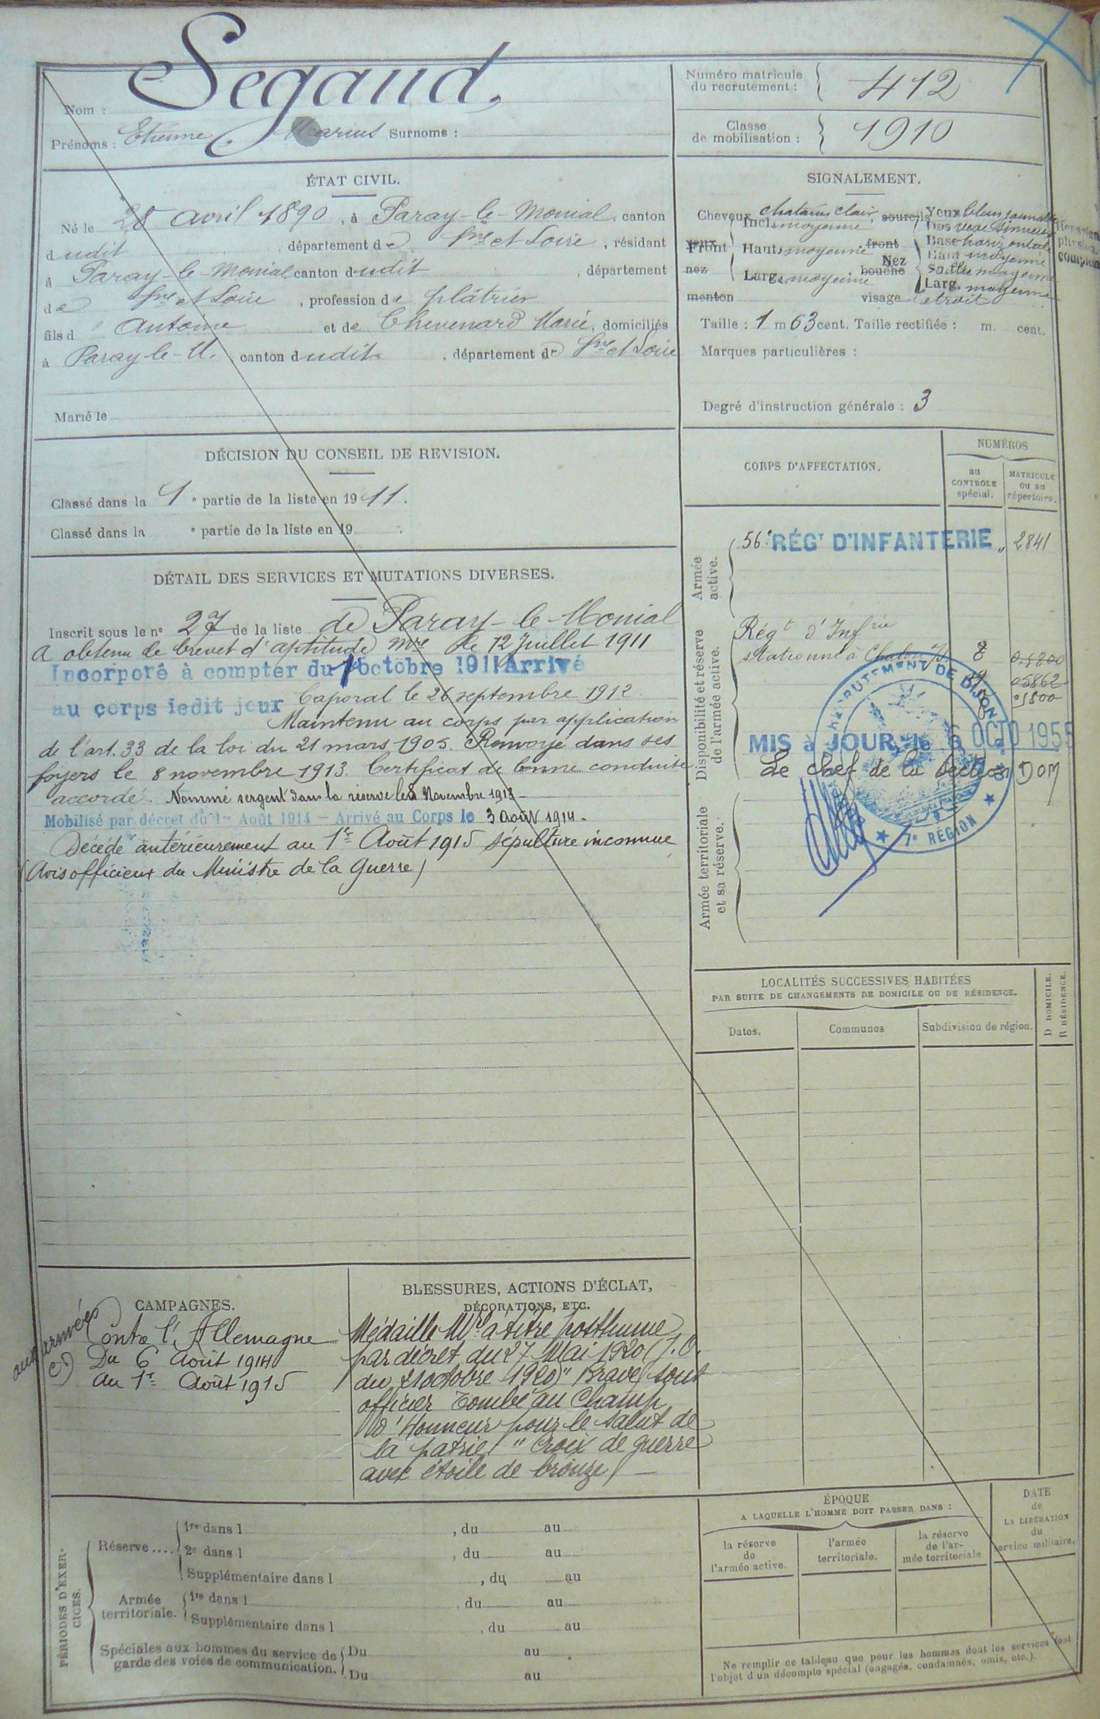 Segaud
Nom :
Prénoms : Etienne Marius Surnoms :
Numéro matricule
du recrutement : 412
Classe
de mobilisation : 1910
ÉTAT CIVIL.
Né le 28 avril 1890, à Paray-le-Monial, canton
dudit, département de Sne et Loire, résidant
à Paray-le-Monial canton dudit, département
de Sne et Loire, profession de plâtrier
fils d' Antoine et de Chevenard Marie, domiciliés
à Paray-le-M. canton dudit, département de Sne et Loire
Marié le
SIGNALEMENT.
Cheveux chatains clair sourcils Yeux bleu
Incl. moyenne Dos
yeux
Front Haut. moyenne front Base horizontale
Nez Haut. moyenne
nez Larg. moyenne bouche Saillie moyenne
Larg. moyenne
menton visage étroit
Taille : 1 m 63 cent. Taille rectifiée : m. cent.
Marques particulières :
Degré d'instruction générale : 3
DÉCISION DU CONSEIL DE REVISION.
Classé dans la 1e partie de la liste en 1911.
Classé dans la e partie de la liste en 19
CORPS D'AFFECTATION.
NUMÉROS
au
CONTRÔLE
spécial.
MATRICULE
ou au
répertoire.
Armée
active.
56e RÉGT D'INFANTERIE " 2841
Disponibilité et réserve
de l'armée active.
Régt d'Infrie
stationné à Chalon
MIS à JOUR, le 6 OCTO 1955
Le chef de la section DOM
RECRUTEMENT DE DIJON
7e RÉGION
Armée territoriale
et sa réserve.
DÉTAIL DES SERVICES ET MUTATIONS DIVERSES.
Inscrit sous le no 27 de la liste de Paray-le-Monial
A obtenu le brevet d'aptitude Mre le 12 Juillet 1911
Incorporé à compter du 1 octobre 1911 Arrivé
au corps ledit jour Caporal le 26 septembre 1912
Maintenu au corps par application
de l'art. 33 de la loi du 21 mars 1905. Renvoyé dans ses
foyers le 8 novembre 1913. Certificat de bonne conduite
accordé. Nommé sergent dans la réserve le 8 Novembre 1913-
Mobilisé par décret du 1er Août 1914 - Arrivé au Corps le 3 août 1914.
Décédé antérieurement au 1er Août 1915 sépulture inconnue
(Avis officieux du Ministre de la Guerre)
LOCALITÉS SUCCESSIVES HABITÉES
PAR SUITE DE CHANGEMENTS DE DOMICILE OU DE RÉSIDENCE.
Dates.
Communes
Subdivision de région.
D DOMICILE.
R RÉSIDENCE.
CAMPAGNES.
aux armées
Contre l'Allemagne
Du 6 Août 1914
au 1er Août 1915
BLESSURES, ACTIONS D'ÉCLAT,
DÉCORATIONS, ETC.
Médaille Mre à titre posthume
par décret du 27 Mai 1920 (J.O.
du 21 octobre 1920) " Brave sous
officier Tombé au Champ
d'Honneur pour le salut de
la patrie " Croix de guerre
avec étoile de bronze
PÉRIODES D'EXER-
CICES.
Réserve .... 1re dans l , du au
2e dans l , du au
Supplémentaire dans l , du au
Armée
territoriale. 1re dans l , du au
Supplémentaire dans l , du au
Spéciales aux hommes du service de
garde des voies de communication. Du au
Du au
ÉPOQUE
A LAQUELLE L'HOMME DOIT PASSER DANS :
la réserve
de
l'armée active.
l'armée
territoriale.
la réserve
de l'ar-
mée territoriale
DATE
de
LA LIBÉRATION
du
service militaire.
Ne remplir ce tableau que pour les hommes dont les services font
l'objet d'un décompte spécial (engagés, condamnés, omis, etc.).